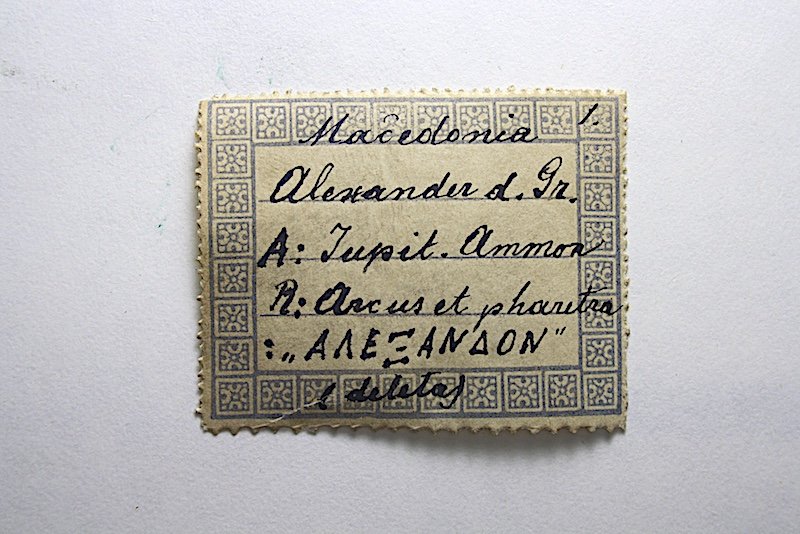 Macedonia 1.
Alexander d. Gr.
A: Jupit. Ammon
R: Arcus et pharetra
: „ΑΛΕΞΑΝΔΟΝ"
(deleta)